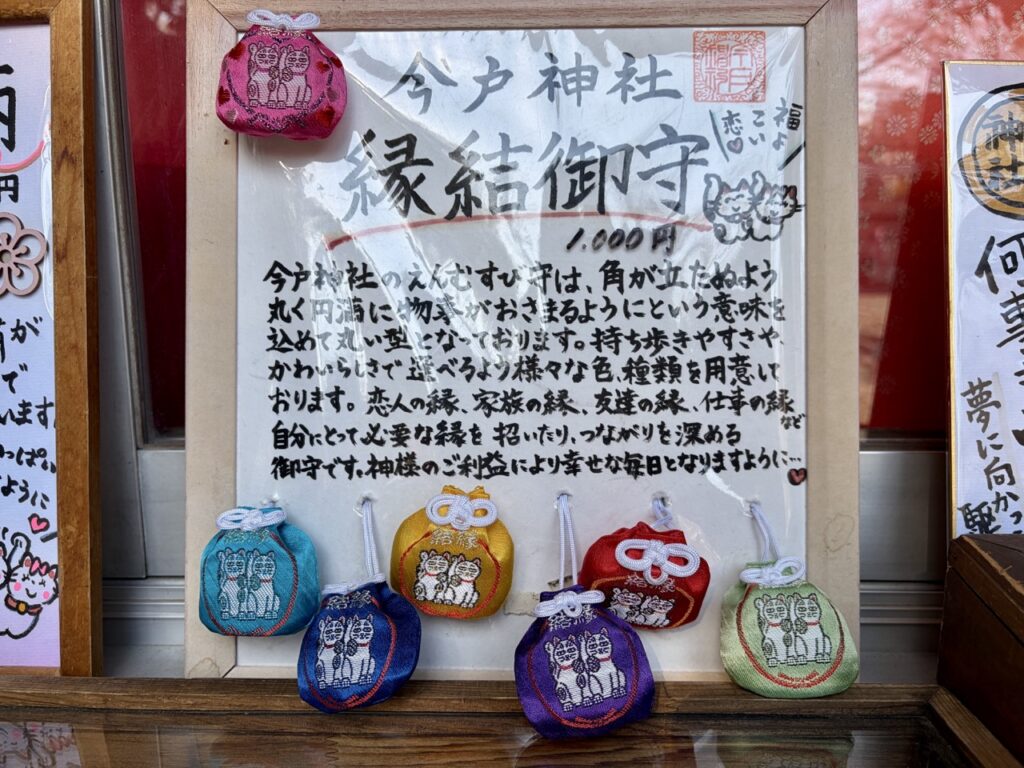 今戸神社
縁結御守
福よ
こい
恋
1.000円
今戸神社のえんむすび守は、角が立たぬよう
丸く円満に物事がおさまるようにという意味を
込めて丸い型となっております。持ち歩きやすさや、
かわいらしさで選べるよう様々な色、種類を用意して
おります。恋人の縁、家族の縁、友達の縁、仕事の縁など
自分にとって必要な縁を招いたり、つながりを深める
御守です。神様のご利益により幸せな毎日となりますように…
円
が
で
います
っぱい
ように
神社
何事
夢に向かっ
駆